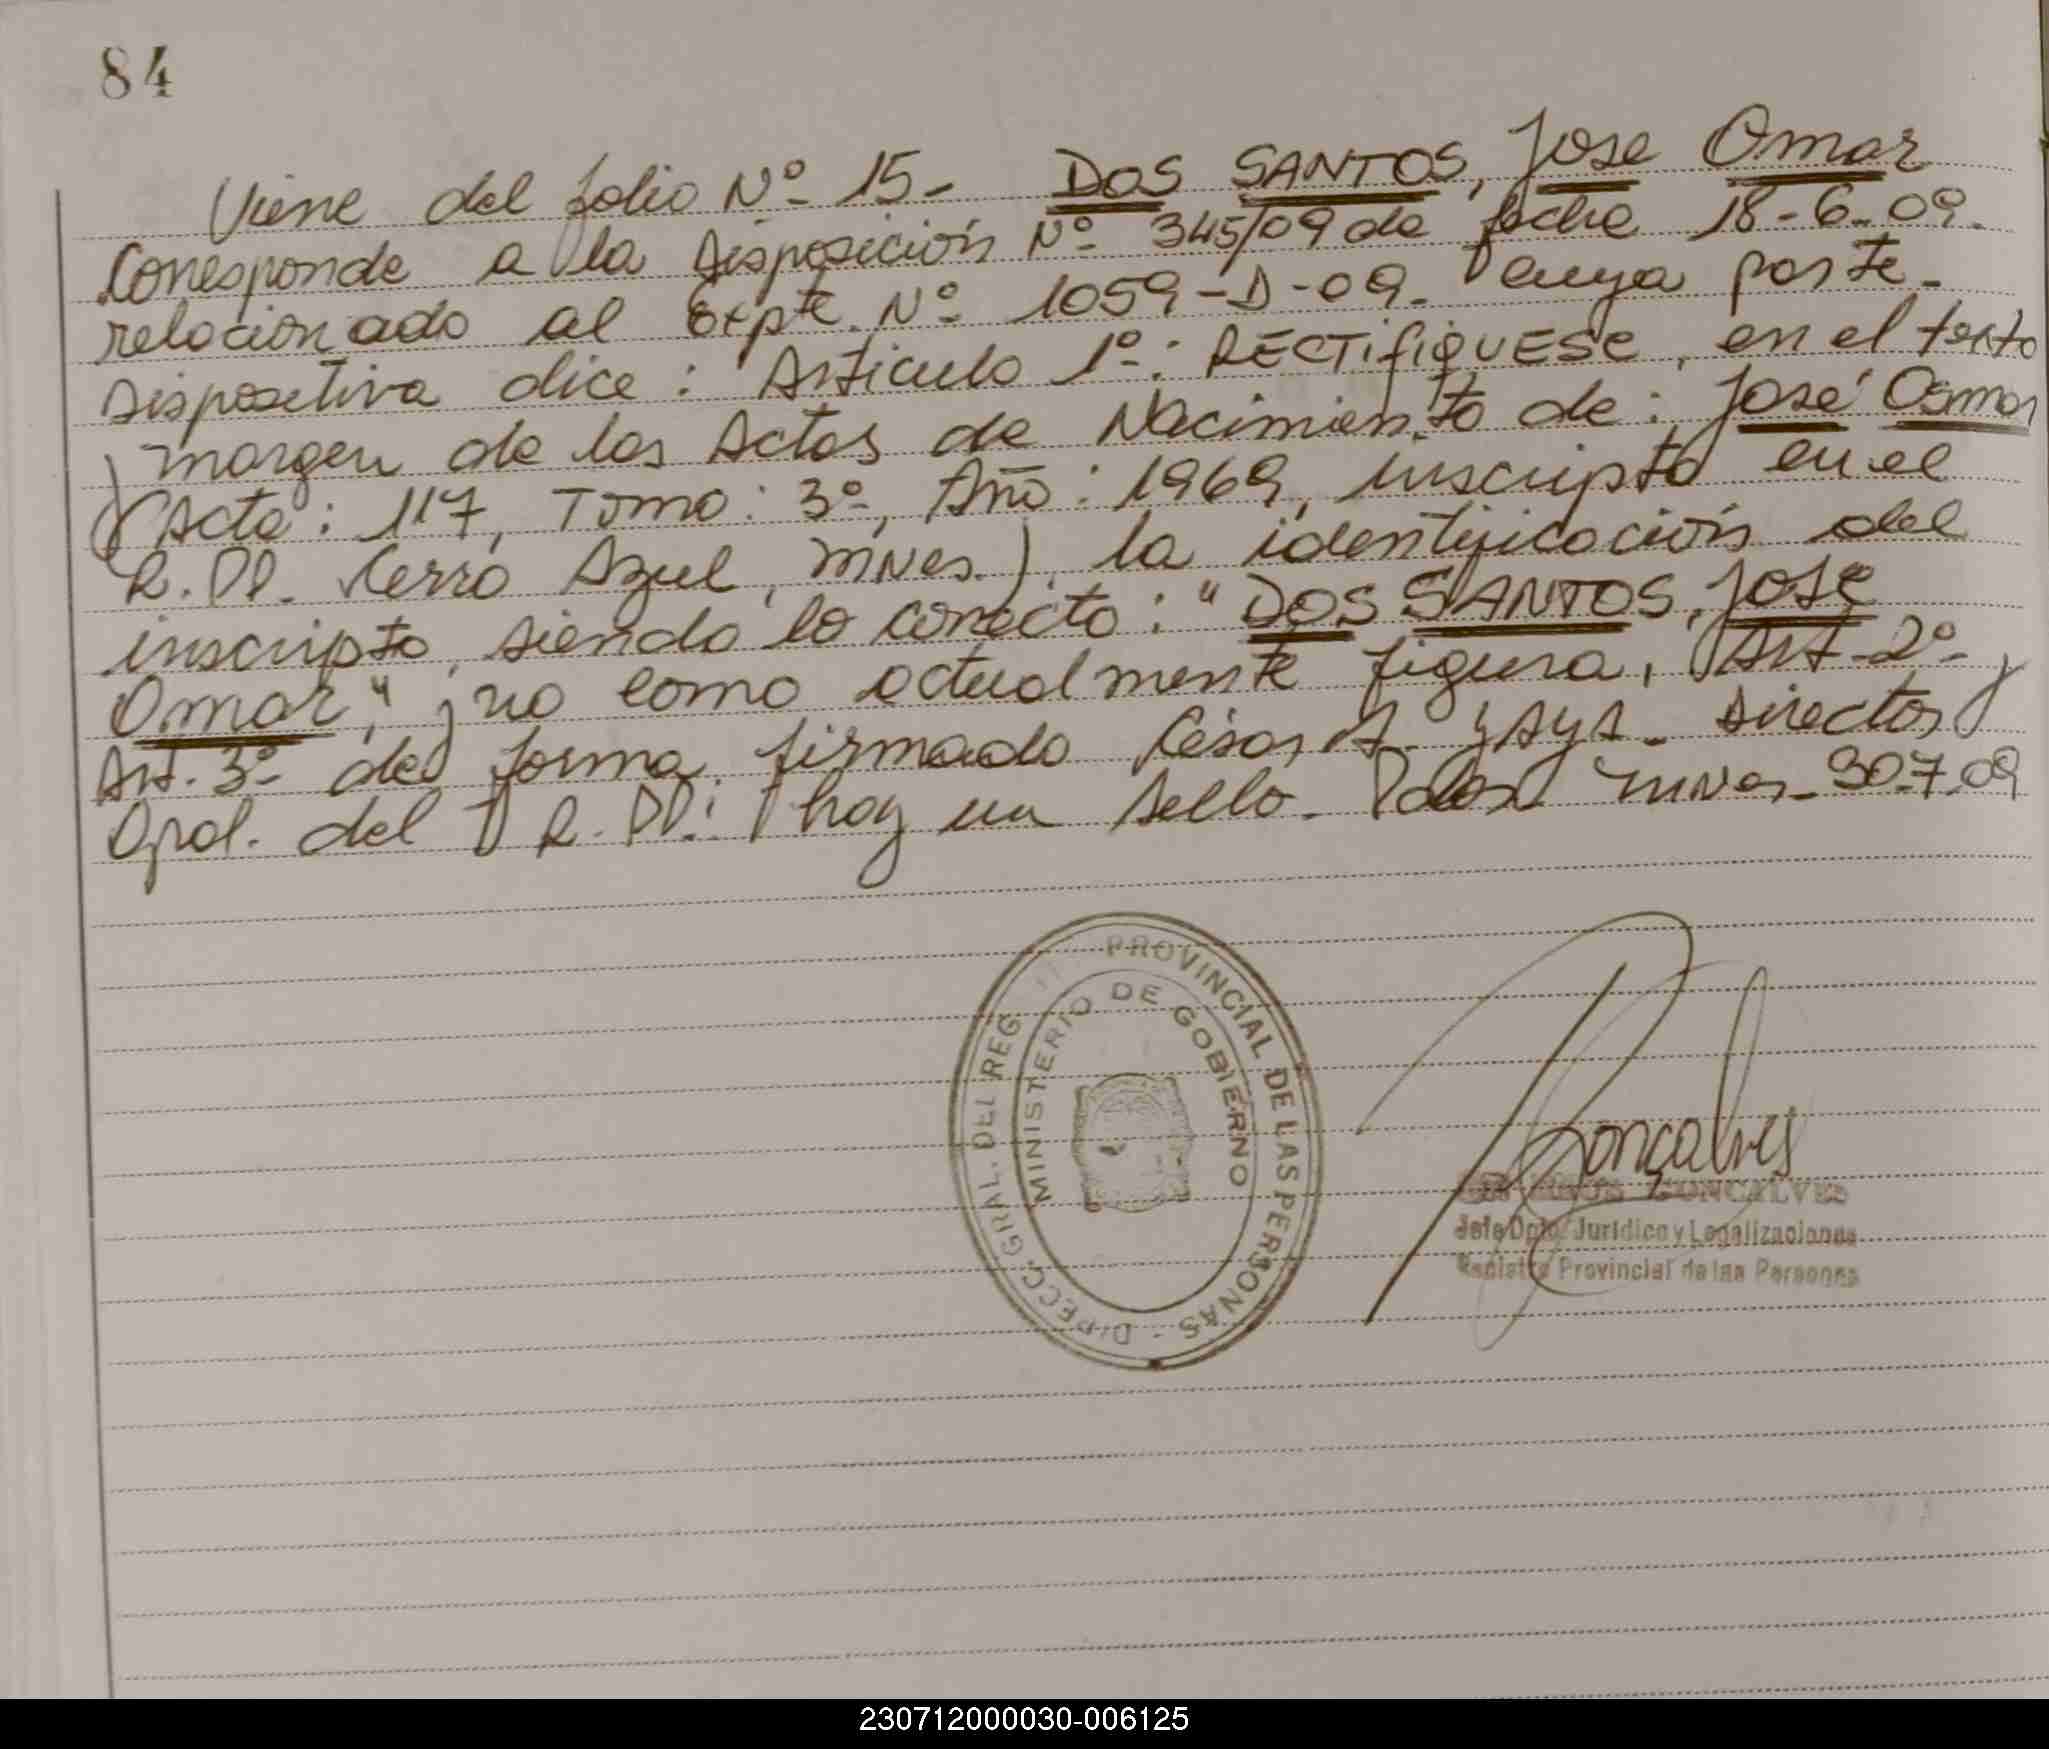 84
Viene del folio Nº 15- DOS SANTOS, Jose Omar
Corresponde a la Disposición Nº 345/09 de fecha 18-6-09.
relacionado al Expte. Nº 1059-D-09. cuya parte-
Dispositiva dice: Artículo 1º: RECTIFIQUESE, en el texto
y margen de las Actas de Nacimiento de: José Osmar
(Acta: 117, Tomo: 3º, Año: 1969, inscripto en el
R.PP. Cerro Azul, Mnes.) la identificación del
inscripto, siendo lo correcto: "DOS SANTOS, JOSE
Omar", y no como actualmente figura, Art-2º y
Art. 3º de forma. firmado César A. Director
Gral. del R.PP. hay un sello. Pdas Mnes-30-7-09
DIRECC. GRAL. DEL REG. PROVINCIAL DE LAS PERSONAS -
MINISTERIO DE GOBIERNO
Gonçalves
GONCALVES
Jefe Dpto. Jurídico y Legalizaciones
Registro Provincial de las Personas
230712000030-006125